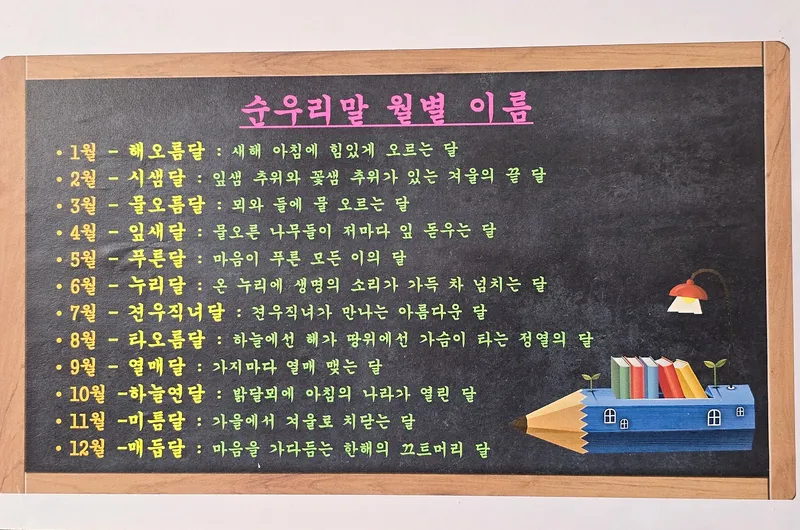 순우리말 월별 이름
• 1월 - 해오름달 : 새해 아침에 힘있게 오르는 달
• 2월 - 시샘달 : 잎샘 추위와 꽃샘 추위가 있는 겨울의 끝 달
• 3월 - 물오름달 : 뫼와 들에 물 오르는 달
• 4월 - 잎새달 : 물오른 나무들이 저마다 잎 돋우는 달
• 5월 - 푸른달 : 마음이 푸른 모든 이의 달
• 6월 - 누리달 : 온 누리에 생명의 소리가 가득 차 넘치는 달
• 7월 - 견우직녀달 : 견우직녀가 만나는 아름다운 달
• 8월 - 타오름달 : 하늘에선 해가 땅위에선 가슴이 타는 정열의 달
• 9월 - 열매달 : 가지마다 열매 맺는 달
• 10월 -하늘연달 : 밝달뫼에 아침의 나라가 열린 달
• 11월 -미틈달 : 가을에서 겨울로 치닫는 달
• 12월 -매듭달 : 마음을 가다듬는 한해의 끄트머리 달